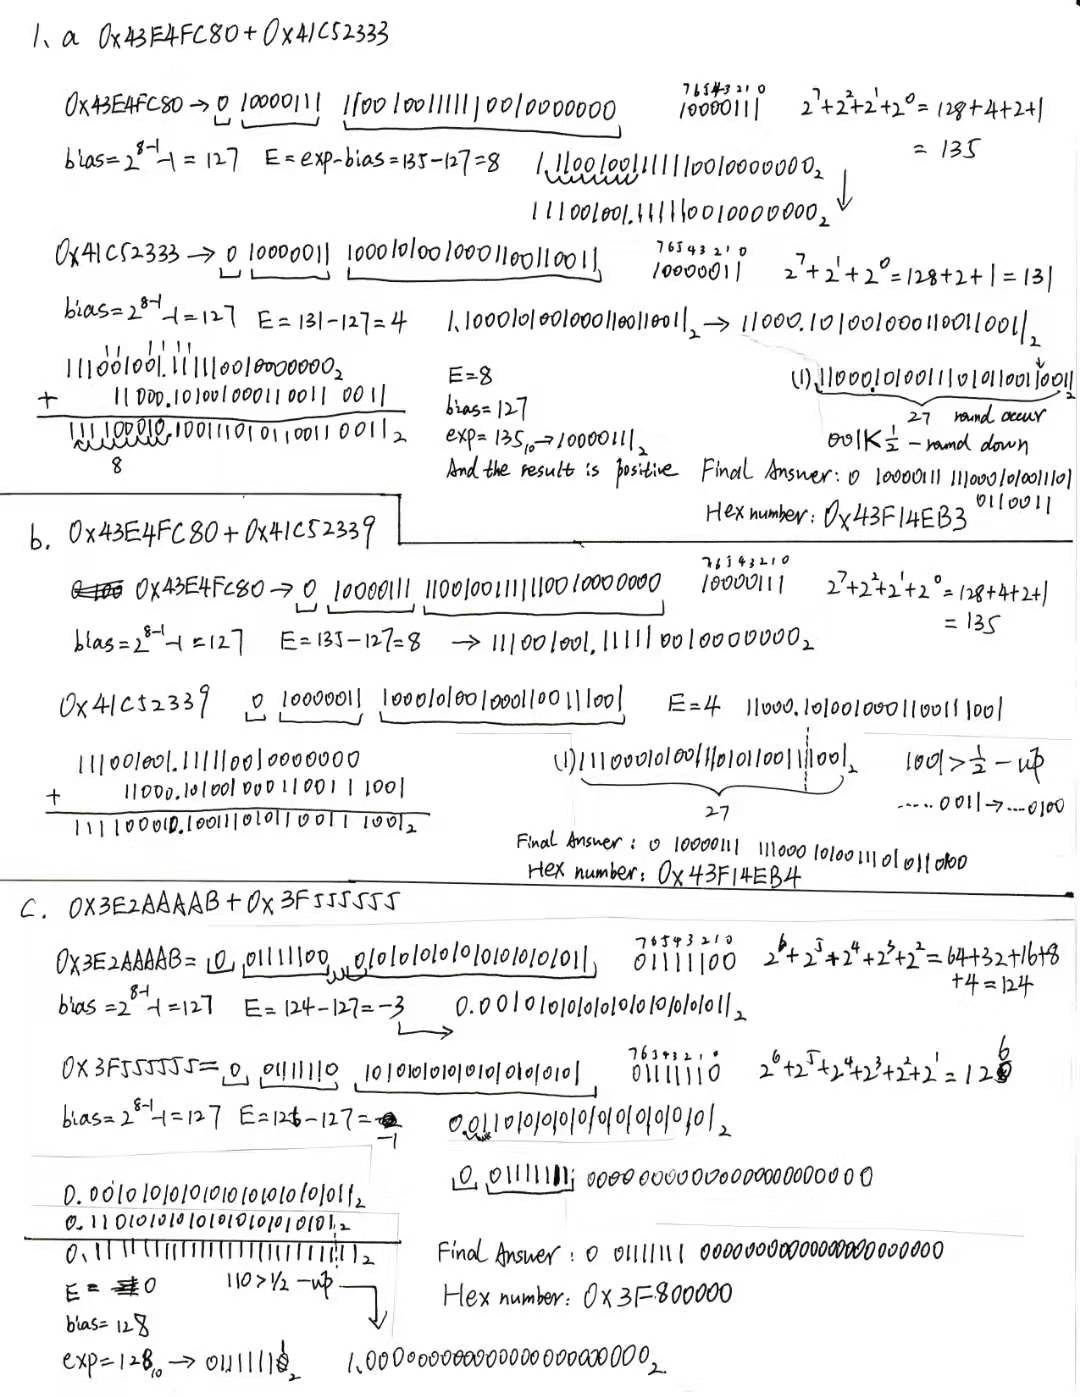 1. a 0x43E4FC80+0x41C52333
76543210
0x43E4FC80→0 10000111 11001001111110010000000 10000111 2^7+2^2+2^1+2^0=128+4+2+1
=135
bias=2^8-1-1=127 E=exp-bias=135-127=8 1.11001001111110010000000₂
111001001.111110010000000₂
76543210
0x41C52333→0 10000011 10001010010001100110011 10000011 2^7+2^1+2^0=128+2+1=131
bias=2^8-1-1=127 E=131-127=4 1.10001010010001100110011₂→11000.1010010001100110011₂
111001001.111110010000000₂
+ 11000.1010010001100110011
111100010.1001110101100110011₂
8
E=8
bias=127
exp=135₁₀→10000111₂
And the result is positive
27 round occur
001K½-round down
Final Answer: 0 10000111 11100010100111010110011
Hex number: 0x43F14EB3
b. 0x43E4FC80+0x41C52339
76543210
0x43E4FC80→0 10000111 11001001111110010000000 10000111 2^7+2^2+2^1+2^0=128+4+2+1
=135
bias=2^8-1-1=127 E=135-127=8 →111001001.111110010000000₂
0x41C52339 0 10000011 10001010010001100111001 E=4 11000.1010010001100111001
111001001.111110010000000
+ 11000.1010010001100111001
111100010.1001110101100111001₂
(1)11100010100111010110011|1001₂ 1001>½-up
27
.....0011→...0100
Final Answer: 0 10000111 11100010100111010110100
Hex number: 0x43F14EB4
C. 0X3E2AAAAB+0x3F555555
76543210
0X3E2AAAAB=0 01111100 01010101010101010101011 01111100 2^6+2^5+2^4+2^3+2^2=64+32+16+8
+4=124
bias=2^8-1-1=127 E=124-127=-3 0.00101010101010101010101011₂
76543210
0X3F555555=0 01111110 10101010101010101010101 01111110 2^6+2^5+2^4+2^3+2^2+2^1=126
bias=2^8-1-1=127 E=126-127=-1
0.00101010101010101010101011₂
0.110101010101010101010101₂
E=0 110>1/2-up
bias=128
exp=128₁₀→
1.00000000000000000000000₂
Final Answer: 0 01111111 00000000000000000000000
Hex number: 0x3F800000